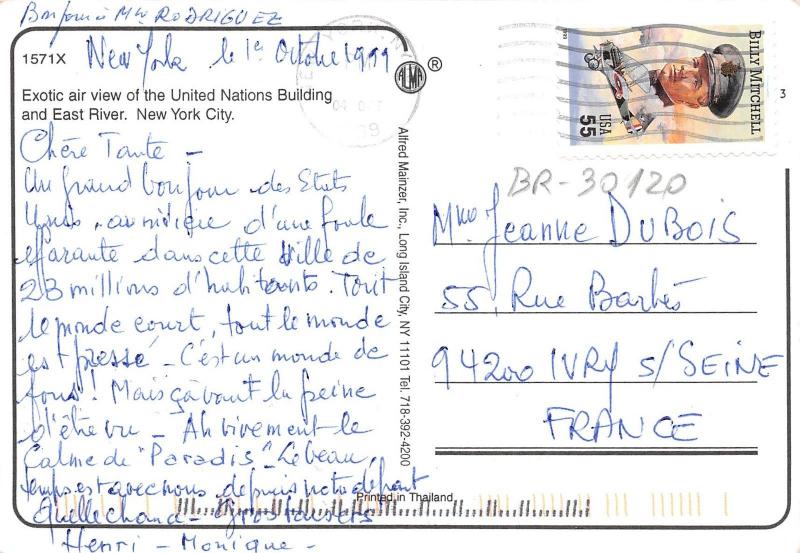 Bonjour à Mme RODRIGUEZ
1571X
New York le 1er Octobre 1999
ALMA ®
Exotic air view of the United Nations Building
and East River. New York City.
Chère Tante -
Un grand bonjour des Etats
Unis, au milieu d'une foule
effarante dans cette ville de
23 millions d'habitants. Tout
le monde court, tout le monde
est pressé - C'est un monde de
fous! Mais ça vaut la peine
d'être vu - Ah vivement le
Calme de "Paradis" - Le beau
temps est avec nous depuis notre départ
Quelle chance - Gros baisers
Henri - Monique -
Alfred Mainzer, Inc., Long Island City, NY 11101 Tel. 718-392-4200
Printed in Thailand
BILLY MITCHELL
55 USA
3
BR-30120
Mme Jeanne DUBOIS
55, Rue Barbès
94200 IVRY S/SEINE
FRANCE